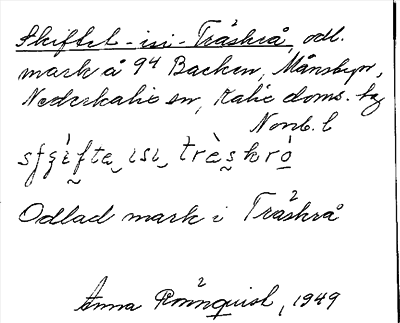 Skiftet-isi-Träskrå, odl.
mark å 94 Backen, Månsbyn,
Nederkalix sn, Kalix doms. hg
Norrb. l
Odlad mark i Träskrå
Anna Rönnquist, 1949